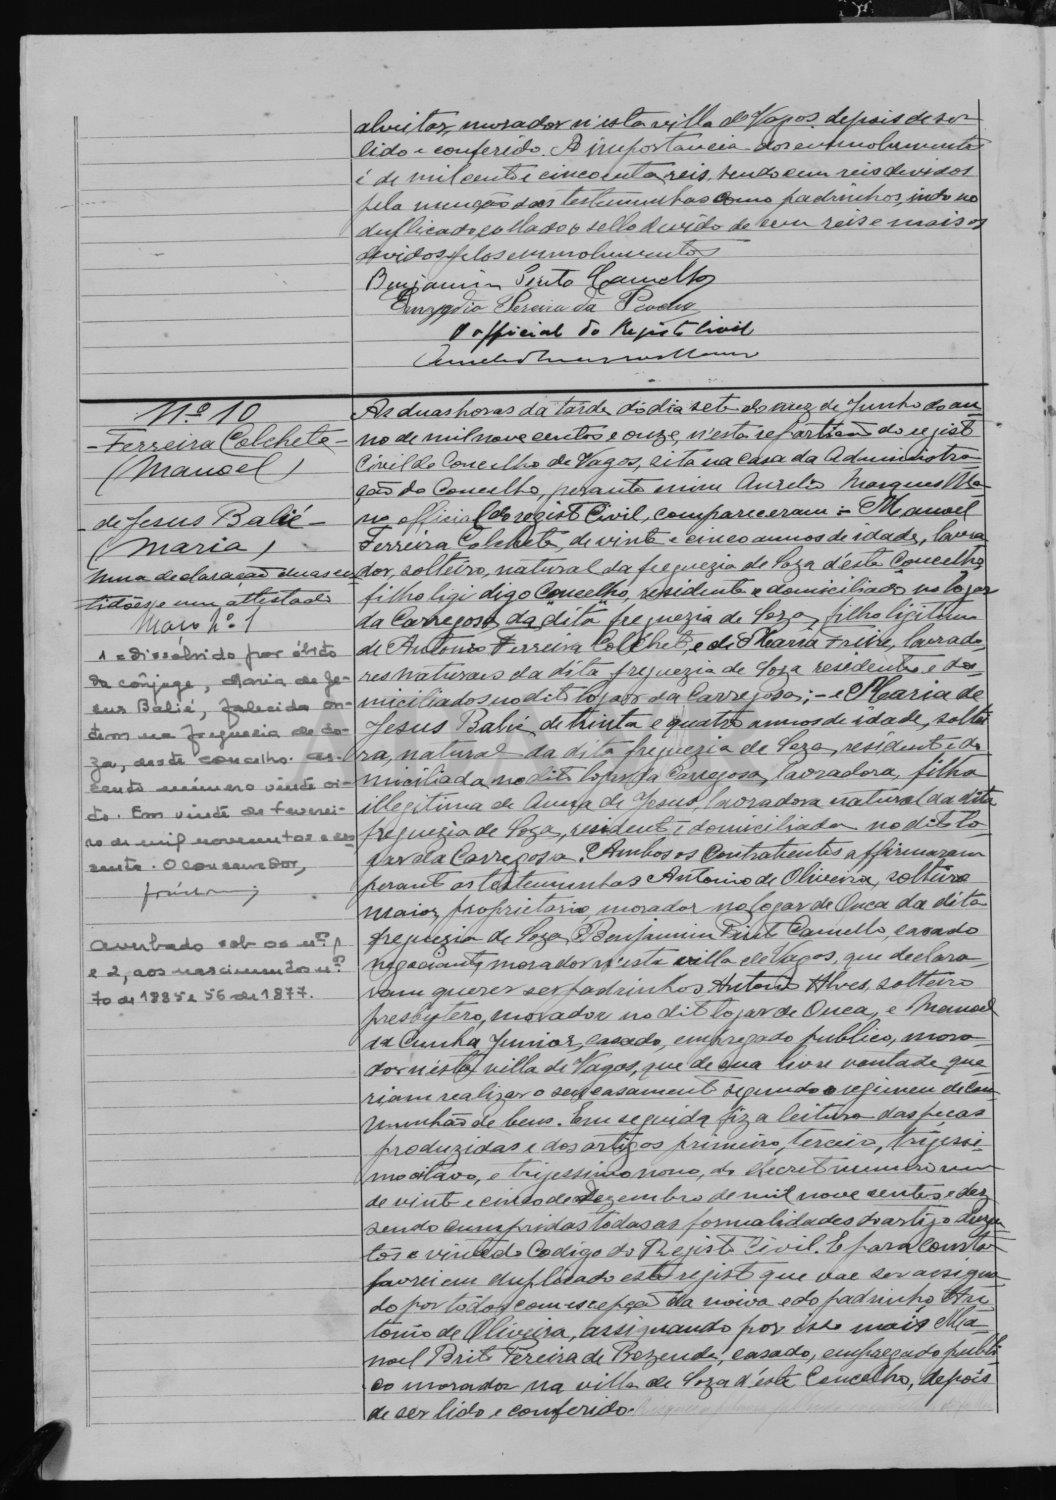 alveitar, morador n'esta villa de Vagos, depois de ser
lido e conferido. A importancia dos emmolumentos
é de mil cento e cincoenta reis, sendo cem reis devidos
pela menção das testemunhas como padrinhos, indo no
duplicado collado o sello devido de cem reis e mais os
devidos pelos emmolumentos
Benjamim Pinto Camello
Pereira da
O official do Registo Civil
Nº 10
- Ferreira Colchete -
(Manoel)
- de Jesus Balié -
(Maria)
Uma declaração duas cer
tidões e um attestado
Maço nº 1
1 = Dissolvido por óbito
da cônjuge, Maria de Je-
sus Balié, falecida on-
tem na freguesia de So-
za, deste concelho. As-
sento número vinte oi-
to. Em vinte de feverei-
ro de mil novecentos e ses-
senta. O conservador,
Averbado sob os nºs 1
e 2, aos nascimentos nºs
70 de 1885 e 56 de 1877.
As duas horas da tarde do dia sete do mez de Junho do an-
no de mil nove centos e onze, n'esta repartição do registo
Civil do Concelho de Vagos, sita na casa da Administra-
ção do Concelho, perante mim Aurelio Marques Ma-
no official do registo Civil, compareceram: - Manoel
Ferreira Colchete, de vinte e cinco annos de idade, lavra
dor, solteiro, natural da freguezia de Soza d'este Concelho,
filho ligi digo Concelho, residente e domiciliado no logar
da Carregosa, da dita freguezia de Soza, filho ligitimo
de Antonio Ferreira Colchete, e de Maria Freire, lavrado-
res naturaes da dita freguezia de Soza residentes e do-
miciliados no dito logar da Carregosa; - e Maria de
Jesus Balié, de trinta e quatro annos de idade, soltei
ra, natural da dita freguezia de Soza, residente e do
miciliada no dito logar da Carregosa, lavradora, filha
illegitima de Anna de Jesus, lavradora natural da dita
freguezia de Soza, residente e domiciliada no dito lo-
gar da Carregosa. Ambos os Contratientes affirmaram
perante as testemunhas Antonio de Oliveira, solteiro
maior, proprietario, morador no logar de Ouca da dita
freguezia de Soza, Benjamim Pinto Camello, casado
negociante, morador n'esta villa de Vagos, que declara-
vam querer ser padrinhos, Antonio Alves, solteiro
presbytero, morador no dito logar de Ouca, e Manoel
da Cunha Junior, casado, empregado publico, mora-
dor n'esta villa de Vagos, que de sua livre vontade que-
riam realizar o seu casamento segundo o regimen de com
munhão de bens. Em seguida fiz a leitura das peças
produzidas e dos artigos primeiro, terceiro, trigessi-
mo oitavo, e trigessimo nono, do decreto numero um
de vinte e cinco de Dezembro de mil nove sentos e dez
sendo cumpridas todas as formalidades do artigo duzen
tos e vinte do Codigo do Registo Civil. E para constar
lavrei em duplicado este registo que vae ser assigna
do por todos com excepção da noiva e do padrinho An
tonio de Oliveira, assignando por isso mais Ma-
noel Brito Pereira de Rezende, casado, empregado publi
co morador na villa de Soza d'este Concelho, depois
de ser lido e conferido.